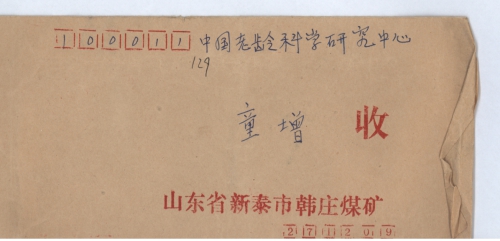 100011 中国老龄科学研究中心
129
童增 收
山东省新泰市韩庄煤矿
271209